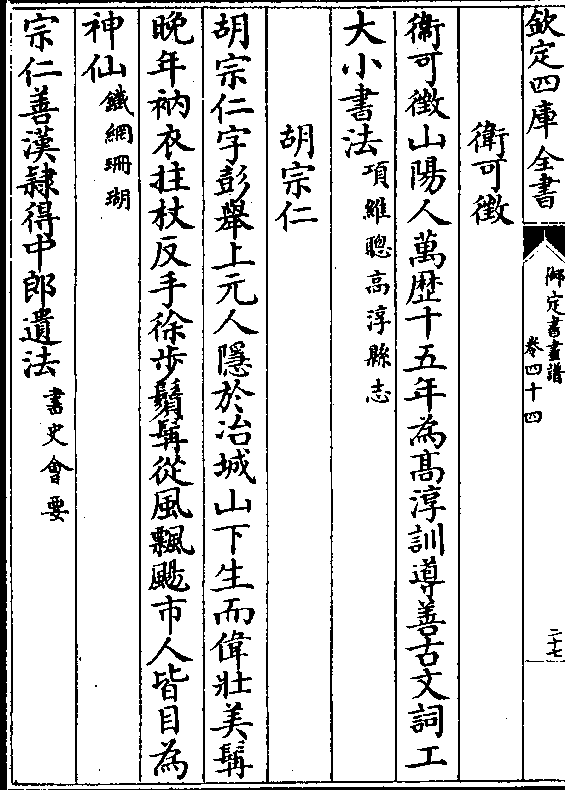 欽定四庫全書
御定書畫譜
卷四十四
二十七
衛可徵
衛可徵山陽人萬歴十五年為高淳訓導善古文詞工
大小書法項維聰高淳縣志
胡宗仁
胡宗仁字彭舉上元人隱於冶城山下生而偉壯美髯
晚年衲衣拄杖反手徐步鬚髯從風飄颺市人皆目為
神仙鐵網珊瑚
宗仁善漢隸得中郎遺法書史會要